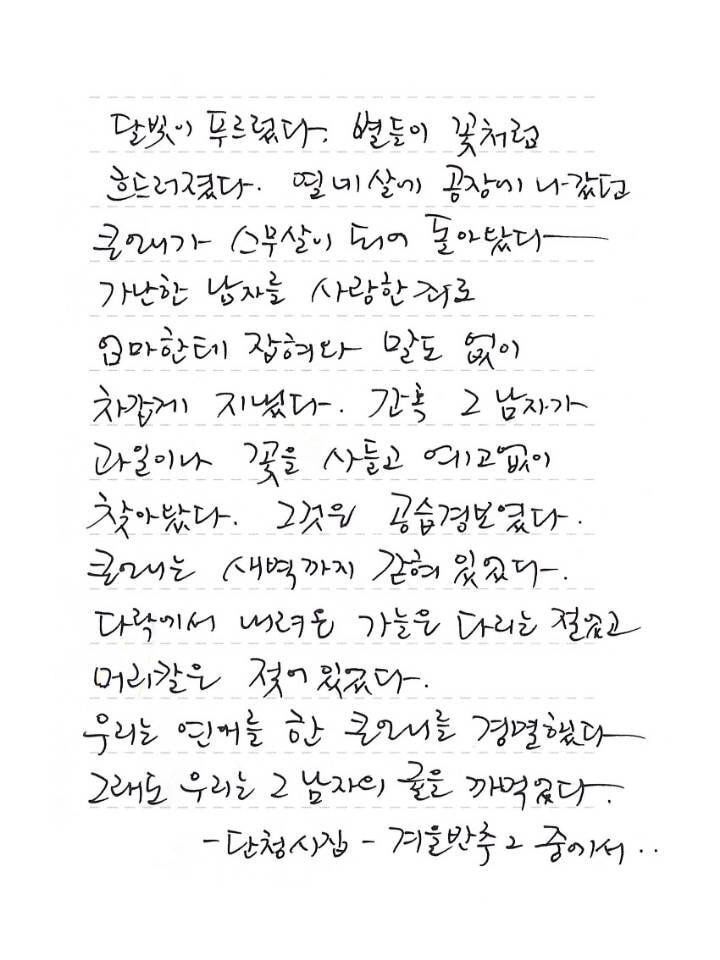 달빛이 푸르렀다. 별들이 꽃처럼
흐드러졌다. 열네살에 공장에 나갔던
큰애가 스무살이 되어 돌아왔다
가난한 남자를 사랑한 죄로
엄마한테 잡혀와 말도 없이
차갑게 지냈다. 간혹 그 남자가
과일이나 꽃을 사들고 예고없이
찾아왔다. 그것은 공습경보였다.
큰언니는 새벽까지 갇혀 있었다.
다락에서 내려온 가늘은 다리는 절었고
머리칼은 젖어 있었다.
우리는 연애를 한 큰언니를 경멸했다
그래도 우리는 그 남자의 귤을 까먹었다.
-단청시집 - 겨울반추 2 중에서..